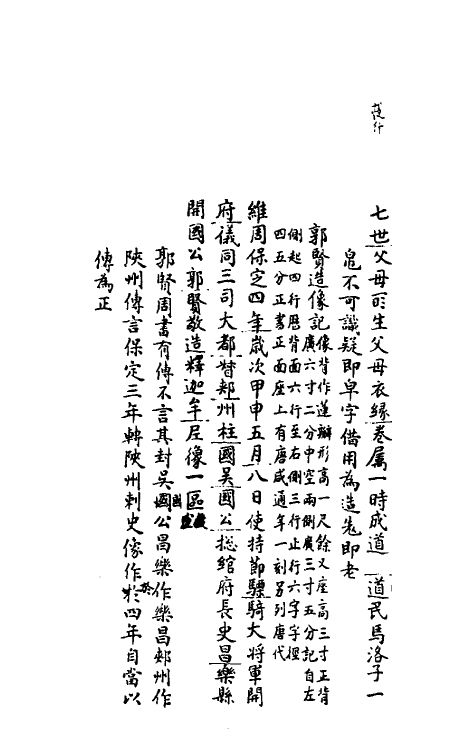 七世父母所生父母衣緣卷属一時成道　道民馬洛子一
皀不可識疑即皁字借用為造㐬即老
郭賢造像記像背作蓮瓣形高一尺餘又座高三寸正背
廣六寸二分中空兩側廣三寸五分記自左
側起四行歷背面六行至右側三行止行六字字徑
四五分正書正面座上有唐咸通年一刻另列唐代
維周保定四年歲次甲申五月八日使持節驃騎大將軍開
府儀同三司大都督郟州柱國吳國公揔綰府長史昌樂縣
開國公郭賢敬造釋迦牟尼像一區
郭賢周書有傳不言其封吳國公昌樂作樂昌郟州作
陝州傳言保定三年轉陝州刺史像作於四年自當以
傳為正